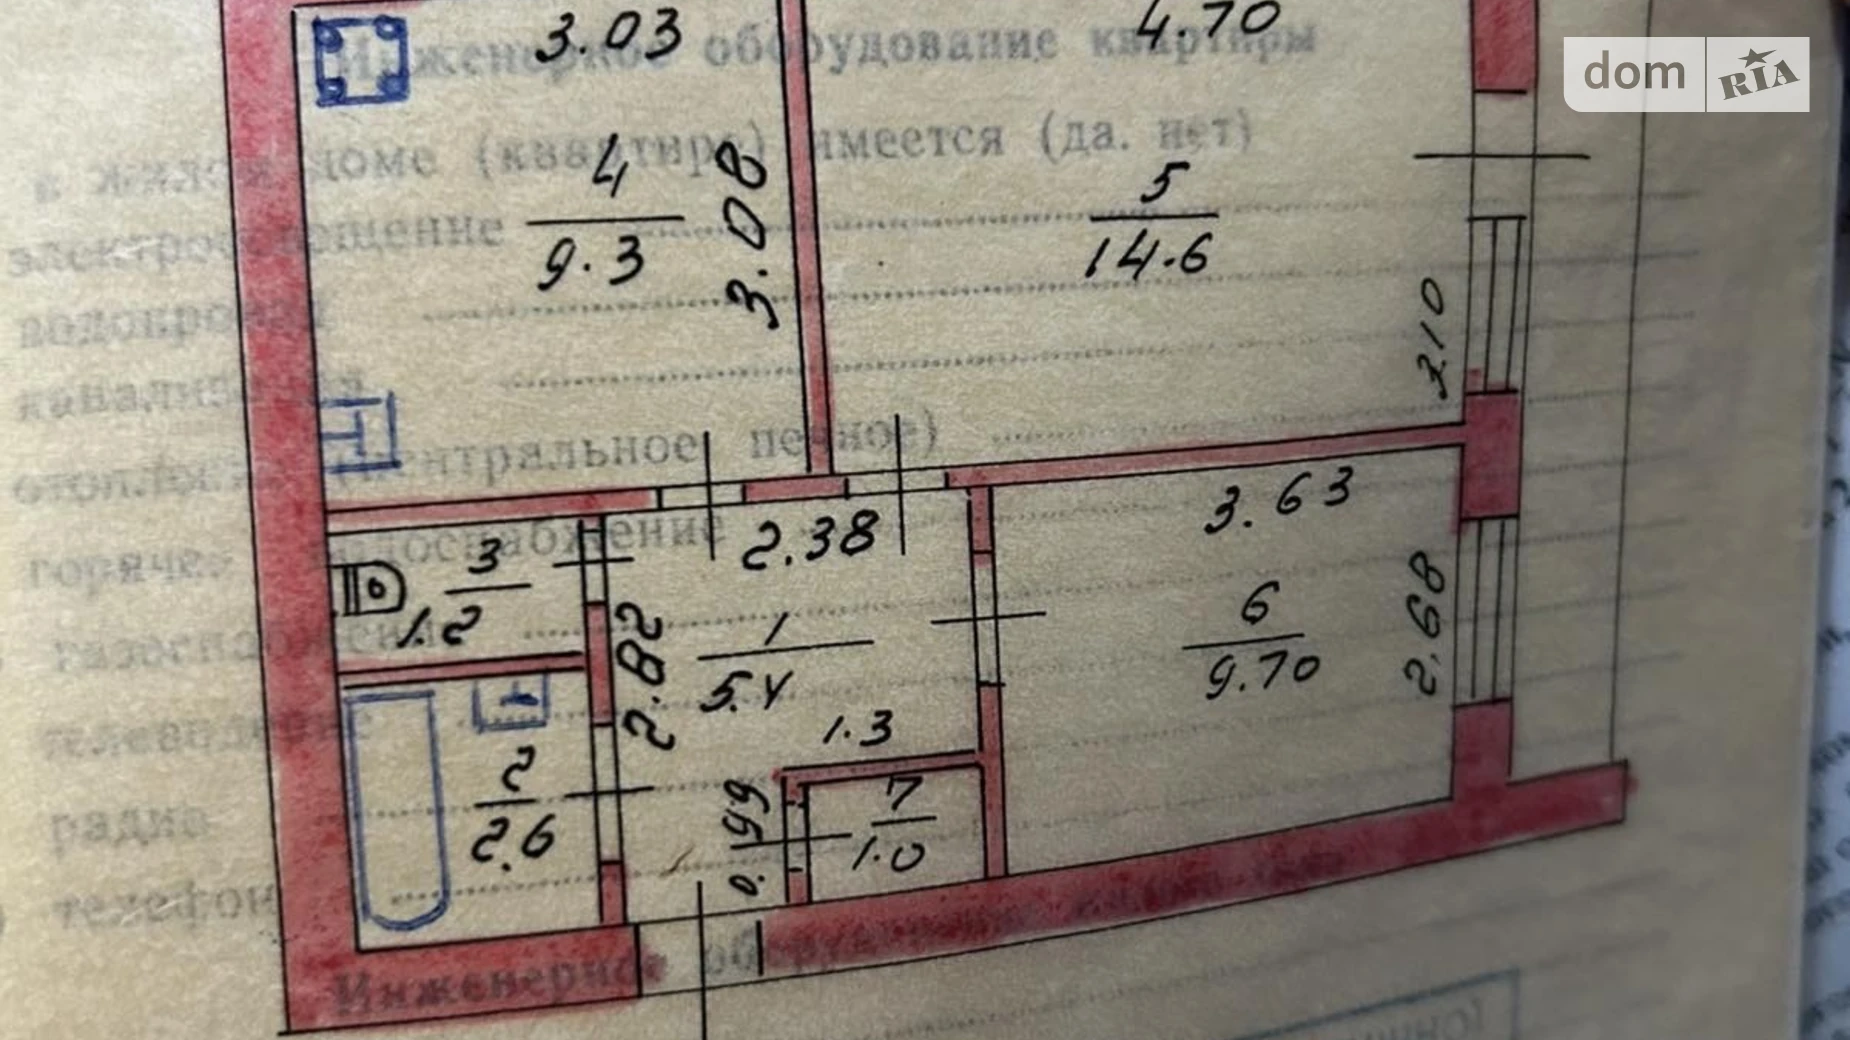 3.03
4.70
dom RIA
Инженерное оборудование квартиры
в жилом доме (квартире) имеется (да. нет)
4
9.3
3.08
5
14.6
3.10
электроосвещение
водопровод
канализация
отопление (центральное печное)
горячее водоснабжение
2.38
3.63
3
1.2
2.82
1
5.4
6
9.70
2.68
газоснабжение
телевидение
1.3
2
2.6
0.99
7
1.0
радио
телефон
Инженерное оборудование жилого